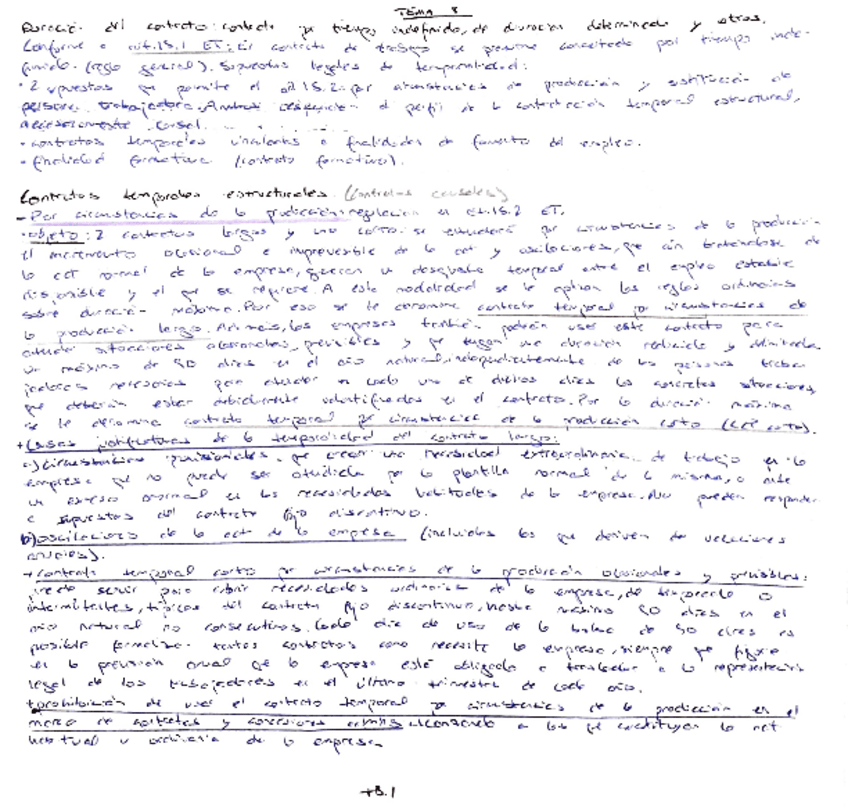 TEMA 8
Duración del contrato: contrato por tiempo indefinido, de duración determinada y otros.
Conforme a art. 15.1 ET: El contrato de trabajo se presume concertado por tiempo inde-
finido. (regla general). Supuestos legales de temporalidad:
· 2 supuestos que permite el art 15.2: por circunstancias de producción y sustitución de
persona trabajadora. Ambos responden al perfil de la contratación temporal estructural,
necesariamente causal.
· contratos temporales vinculados a finalidades de fomento del empleo.
· finalidad formativa (contrato formativo).
Contratos temporales estructurales (Contratos causales)
- Por circunstancias de la producción: regulación en art. 15.2 ET.
· objeto: 2 contratos largos y uno corto: se entenderá por circunstancias de la producción
el incremento ocasional e imprevisible de la act y oscilaciones, que aún tratándose de
la act normal de la empresa, generan un desajuste temporal entre el empleo estable
disponible y el que se requiere. A esta modalidad se le aplican las reglas ordinarias
sobre duración máxima. Por eso se le denomina contrato temporal por circunstancias de
la producción largo. Además, las empresas también podrán usar este contrato para
atender situaciones ocasionales, previsibles y que tengan una duración reducida y delimitada
un máximo de 90 días en el año natural, independientemente de las personas traba
jadoras necesarias para atender en cada uno de dichos días las concretas situaciones,
que deberán estar debidamente identificadas en el contrato. Por la duración máxima
se le denomina contrato temporal por circunstancias de la producción corto
+ Causas justificativas de la temporalidad del contrato largo:
a) circunstancias que crean una necesidad extraordinaria de trabajo en la
empresa que no puede ser atendida por la plantilla normal de la misma, o ante
un exceso anormal en las necesidades habituales de la empresa. No pueden responder
a supuestos del contrato fijo discontinuo.
b) oscilaciones de la act de la empresa (incluidas las que deriven de vacaciones
anuales).
+ contrato temporal corto por circunstancias de la producción ocasionales y previsibles:
puede servir para cubrir necesidades ordinarias de la empresa, de temporada o
intermitentes, típicas del contrato fijo discontinuo, hasta máximo 90 días en el
año natural no consecutivos. Cada día de uso de la bolsa de 90 días es
posible formalizar tantos contratos como necesite la empresa, siempre que figure
en la previsión anual que la empresa está obligada a trasladar a la representación
legal de los trabajadores en el último trimestre de cada año.
+ prohibición de usar el contrato temporal por circunstancias de la producción en el
marco de contratas y concesiones admvas a las que constituyan la act
habitual u ordinaria de la empresa.
T8.1